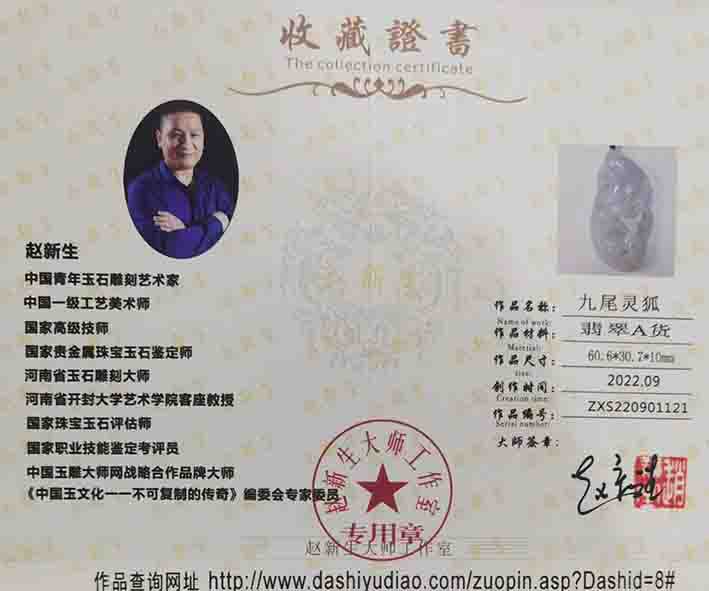 收藏證書
The collection certificate
赵新生
中国青年玉石雕刻艺术家
中国一级工艺美术师
国家高级技师
国家贵金属珠宝玉石鉴定师
河南省玉石雕刻大师
河南省开封大学艺术学院客座教授
国家珠宝玉石评估师
国家职业技能鉴定考评员
中国玉雕大师网战略合作品牌大师
《中国玉文化一一不可复制的传奇》编委会专家委员
赵新生
作品名称: 九尾灵狐
Name of work:
作品材料: 翡翠A货
Material:
作品尺寸: 60.6*30.7*10mm
size:
创作时间: 2022.09
Creation time:
作品编号: ZXS220901121
Serial number:
大师签章:
赵新生
赵新生大师工作室
专用章
赵新生大师工作室
作品查询网址 http://www.dashiyudiao.com/zuopin.asp?Dashid=8#